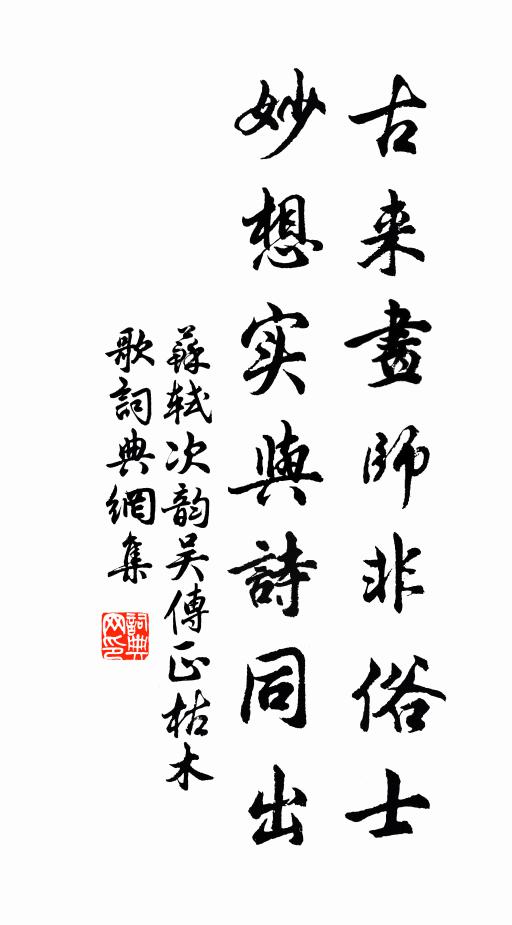 古来畫師非俗士
妙想实與詩同出
蘇軾次韵吴傅正枯木
歌詞典網集
詞典
网印